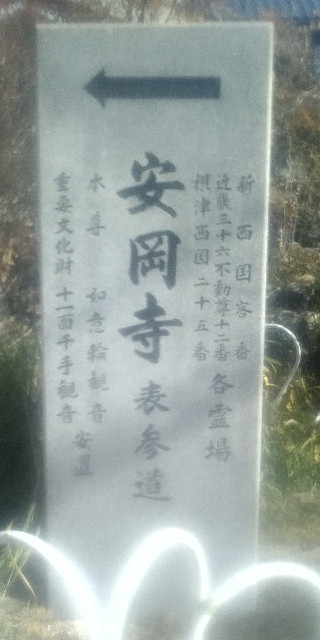 新西国客番
近畿三十六不動尊十二番
摂津西国二十五番
各霊場
安岡寺 表参道
本尊 如意輪観音
重要文化財 十一面千手観音
安置